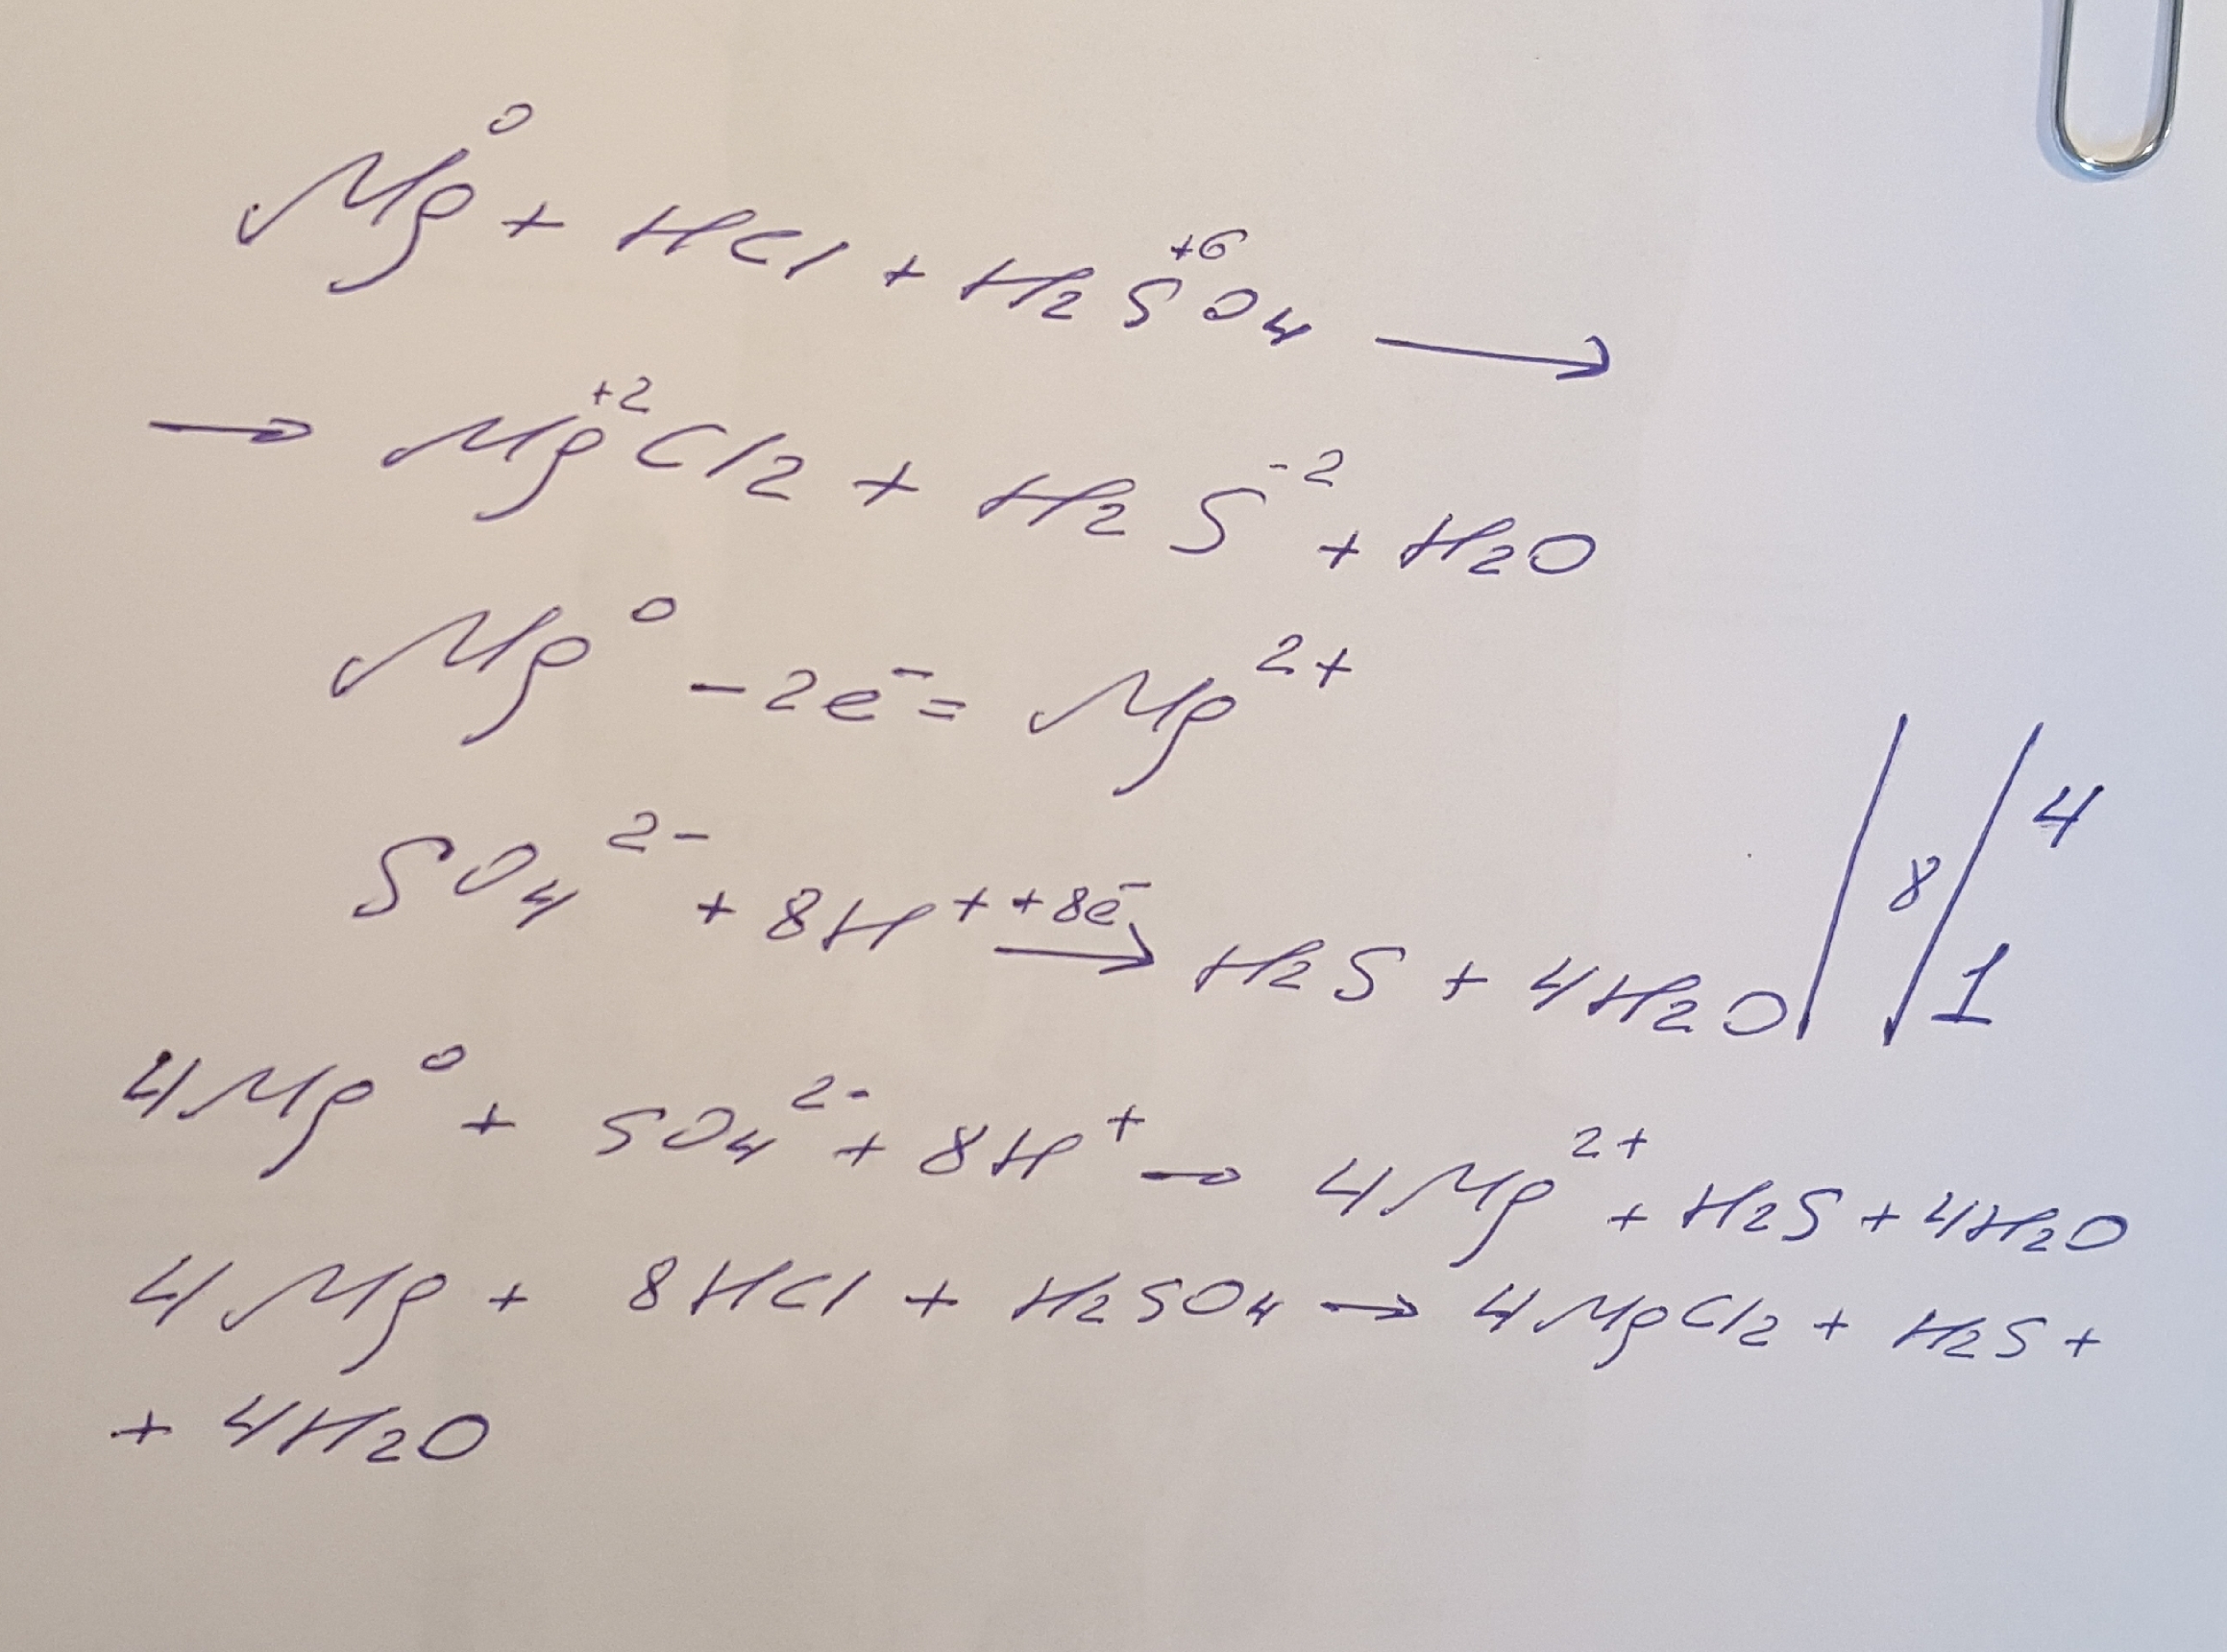 Mg⁰ + HCl + H₂S⁺⁶O₄ →
→ Mg⁺²Cl₂ + H₂S⁻² + H₂O
Mg⁰ - 2e⁻ = Mg²⁺ | | 4
SO₄²⁻ + 8H⁺ +8e⁻→ H₂S + 4H₂O | 8 | 1
4Mg⁰ + SO₄²⁻ + 8H⁺ → 4Mg²⁺ + H₂S + 4H₂O
4Mg + 8HCl + H₂SO₄ → 4MgCl₂ + H₂S +
+ 4H₂O